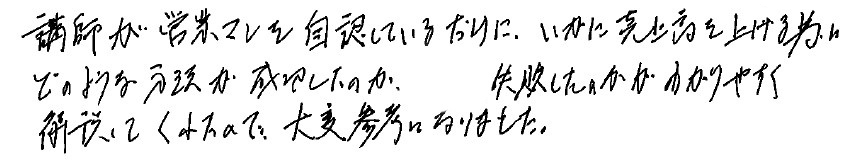 講師が営業マンを自認しているだけに、いかに売上高を上げる為に
どのような方法が成功したのか、 失敗したのかがわかりやすく
解説してくれたので、大変参考になりました。